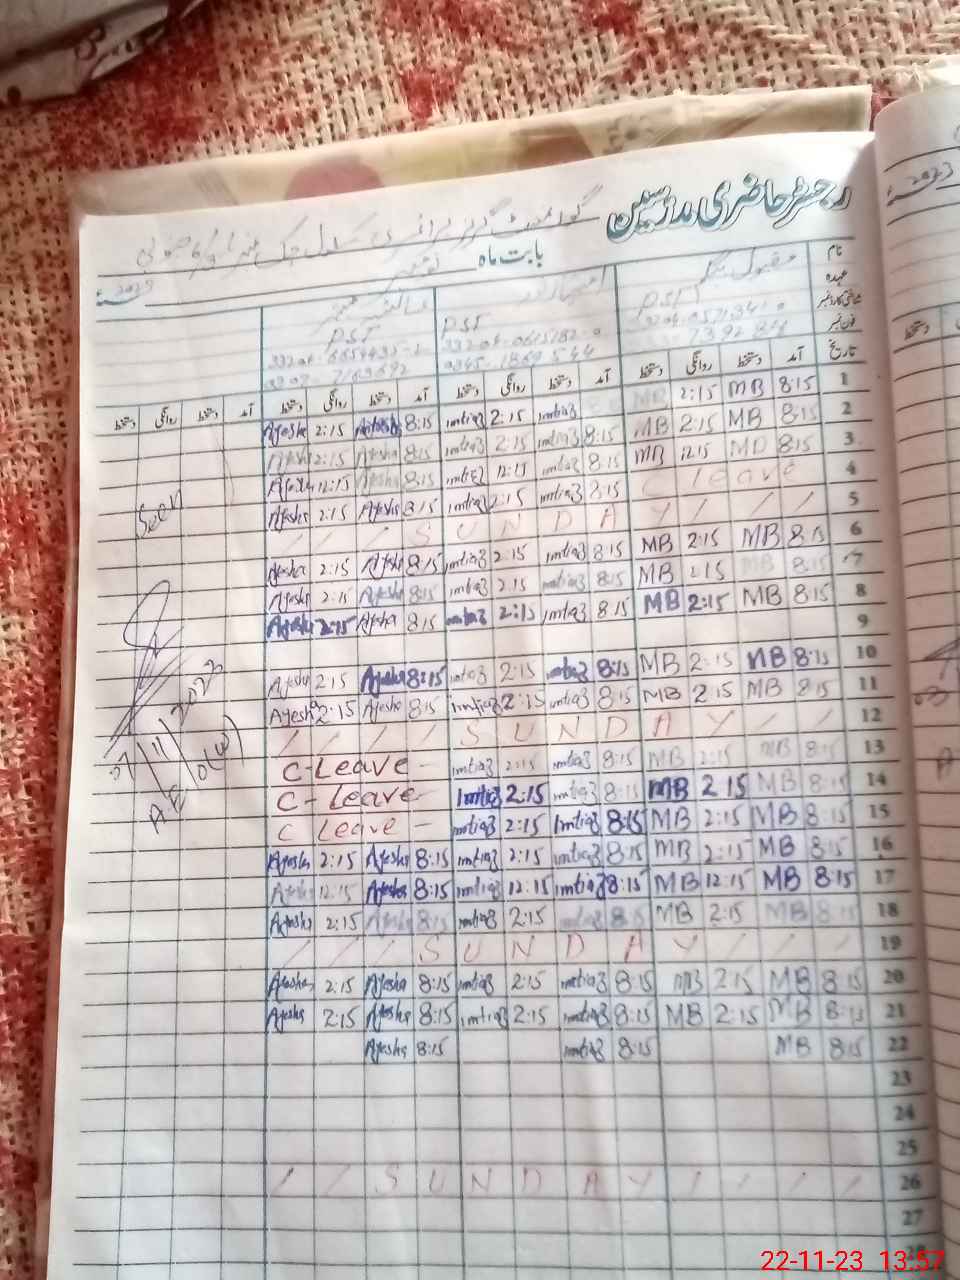 رجسٹر حاضری مدرسین
گورنمنٹ گرلز پرائمری سکول چک نمبر
بابت ماہ نومبر 2023ء
نام
عہدہ
شناختی کارڈ نمبر
فون نمبر
مقبول بیگم PST
امتیاز PST
عائشہ PST
تاریخ آمد دستخط روانگی دستخط آمد دستخط روانگی دستخط آمد دستخط روانگی دستخط آمد دستخط روانگی دستخط
1 8:15 MB 2:15 MB imtiaz 2:15 imtiaz 8:15 Ayesha 2:15 Ayesha
2 8:15 MB 2:15 MB 8:15 imtiaz 2:15 imtiaz 8:15 Ayesha 2:15 Ayesha
3 8:15 MB 12:15 MB 8:15 imtiaz 12:15 imtiaz 8:15 Ayesha 12:15 Ayesha
4 C leave 8:15 imtiaz 2:15 imtiaz 8:15 Ayesha 2:15 Ayesha
5 / / / S U N D A Y / / /
6 8:15 MB 2:15 MB 8:15 imtiaz 2:15 imtiaz 8:15 Ayesha 2:15 Ayesha
7 8:15 MB 2:15 MB 8:15 imtiaz 2:15 imtiaz 8:15 Ayesha 2:15 Ayesha
8 8:15 MB 2:15 MB 8:15 imtiaz 2:15 imtiaz 8:15 Ayesha 2:15 Ayesha
9
10 8:15 MB 2:15 MB 8:15 imtiaz 2:15 imtiaz 8:15 Ayesha 2:15 Ayesha
11 8:15 MB 2:15 MB 8:15 imtiaz 2:15 imtiaz 8:15 Ayesha 2:15 Ayesha
12 / / / / S U N D A Y / /
13 8:15 MB 2:15 MB 8:15 imtiaz 2:15 imtiaz C-Leave -
14 8:15 MB 2:15 MB 8:15 imtiaz 2:15 imtiaz C-Leave -
15 8:15 MB 2:15 MB 8:15 imtiaz 2:15 imtiaz C Leave -
16 8:15 MB 2:15 MB 8:15 imtiaz 2:15 imtiaz 8:15 Ayesha 2:15 Ayesha
17 8:15 MB 12:15 MB 8:15 imtiaz 12:15 imtiaz 8:15 Ayesha 12:15 Ayesha
18 8:15 MB 2:15 MB 8:15 imtiaz 2:15 imtiaz 8:15 Ayesha 2:15 Ayesha
19 / / / S U N D A Y / / /
20 8:15 MB 2:15 MB 8:15 imtiaz 2:15 imtiaz 8:15 Ayesha 2:15 Ayesha
21 8:15 MB 2:15 MB 8:15 imtiaz 2:15 imtiaz 8:15 Ayesha 2:15 Ayesha
22 8:15 MB 8:15 imtiaz 8:15 Ayesha
23
24
25
26 / / S U N D A Y / / / /
27
28
Seen
AEO(W)
22-11-23 13:57